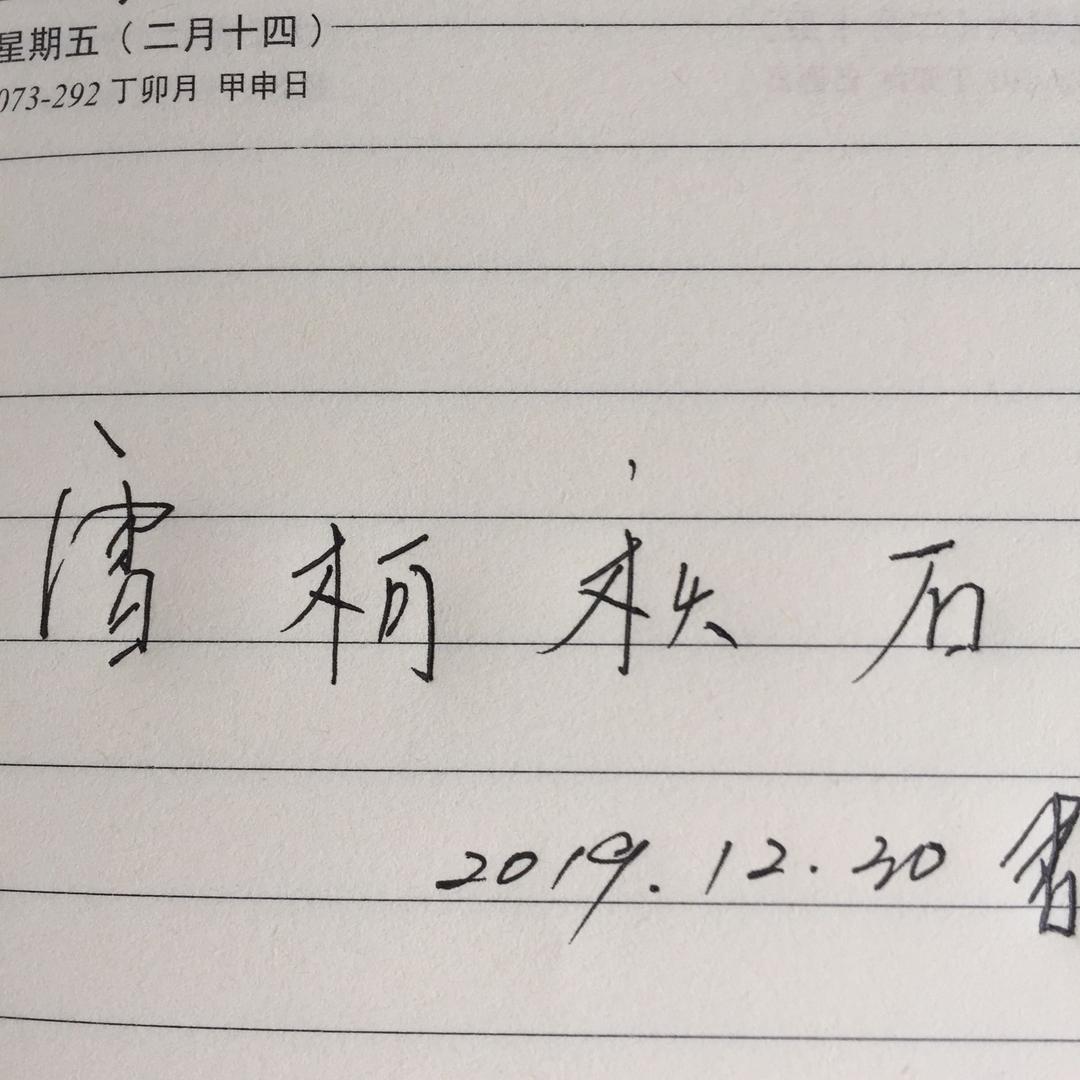 星期五（二月十四）
073-292 丁卯月 甲申日
柯 秩 后
2019.12.30